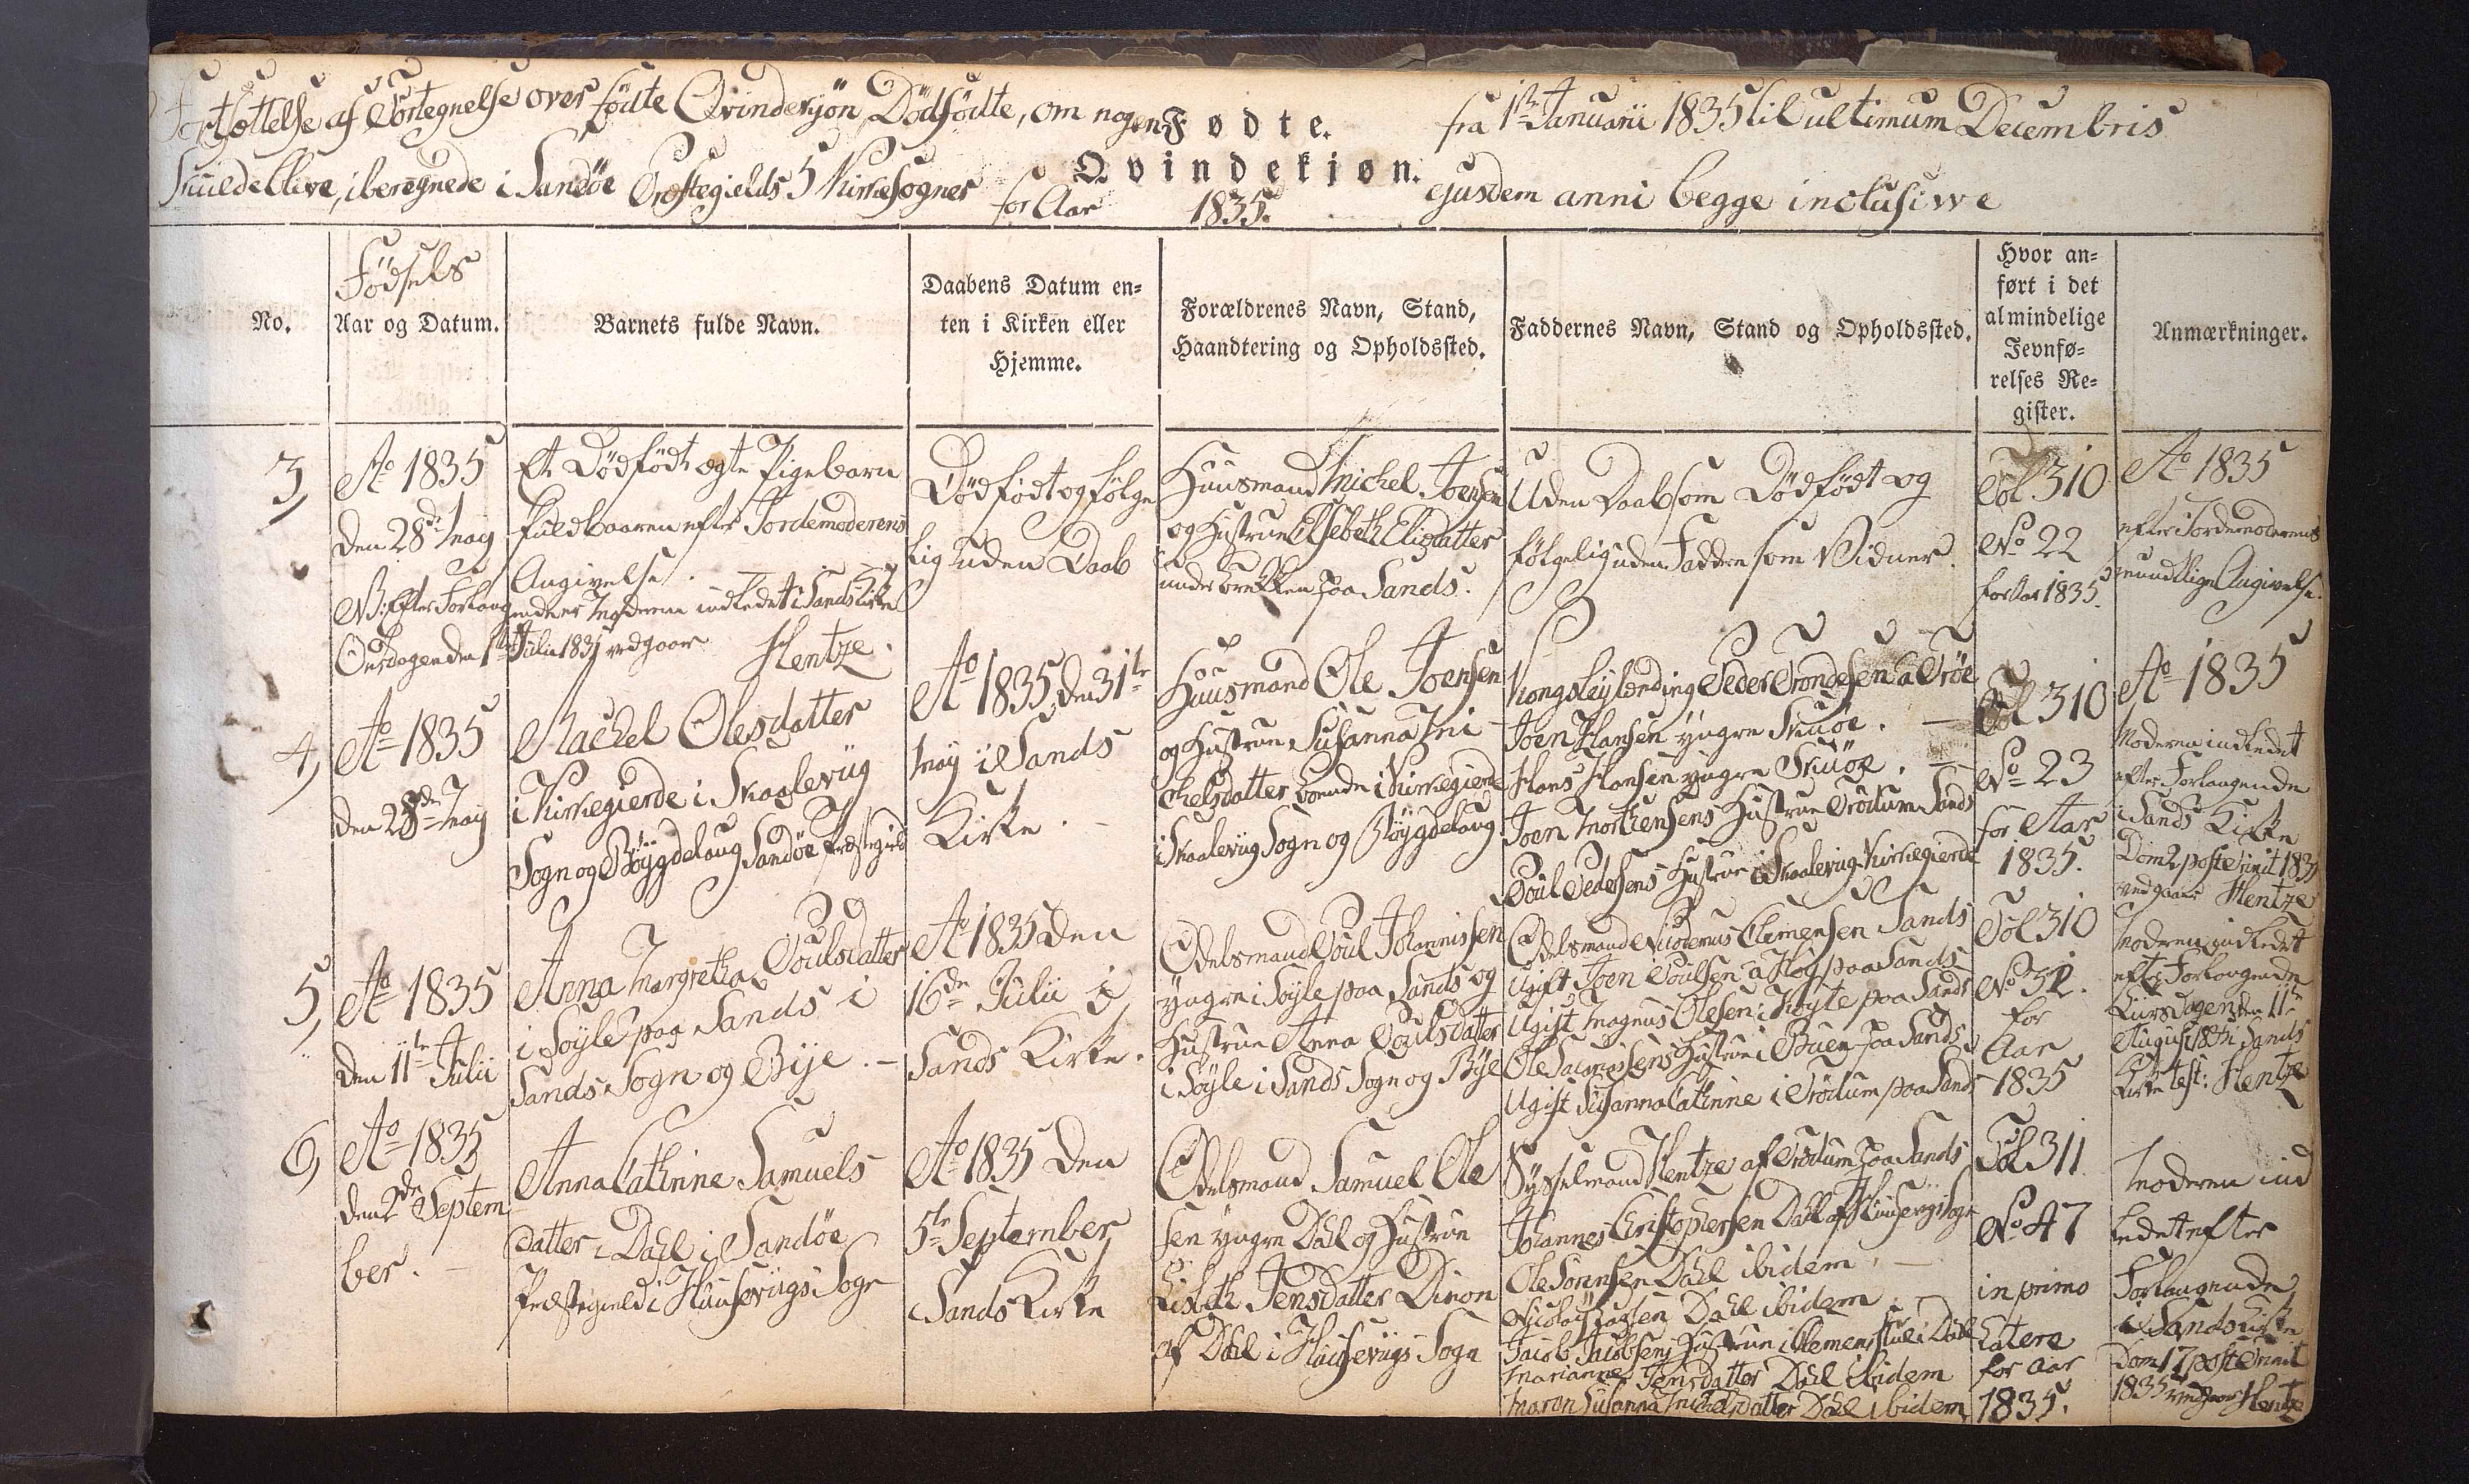 Fortsættelse af Fortegnelse over fødte Qvindekjön, Dödfödte, om nogen
Skulde blive, iberegnede i Sandöe Præstegields 5 Kirkesogner for Aar
Fødte.
Qvindekjøn.
1835.
fra 1ste Januarii 1835 til ultimum Decembris
ejusdem anni begge inclusiwe
No.
Fødsels
Aar og Datum.
Barnets fulde Navn.
Daabens Datum en-
ten i Kirken eller
Hjemme.
Forældrenes Navn, Stand,
Haandtering og Opholdssted.
Faddernes Navn, Stand og Opholdssted.
Hvor an-
ført i det
almindelige
Jevnfø-
relses Re-
gister.
Anmærkninger.
3,
Ao 1835
den 28de May
Et Dödfödt ægte Pigebarn
fuldbaaren efter Jordemoderens
Angivelse.
NB: Efter Forlangende er Moderen indledet i Sands Kirke
Onsdagen den 1ste Julii 1835 vedgaaer Hentze.
Dödfödt og fölge
lig uden Daab
Huusmand Michel Joensen
og Hustrue Elsebeth Elisdatter
under Brekken paa Sands.
Uden Daab som Dödfödt og
fölgelig uden Faddere som Vidner.
Fol 310
No 22
for Aar 1835.
Ao 1835
efter Jordemoderens
mundtlige Angivelse.
4,
Ao 1835
den 28de May
Rachel Olesdatter
i Kirkegierde i Skaalevüg
Sogn og Böygdelaug Sandöe Præstegield
Ao 1835, den 31te
May i Sands
Kirke.
Huusmand Ole Joensen
og Hustrue Susanna Mi
chelsdatter boende i Kirkegierde
i Skaalevüg Sogn og Böygdelaug
Kongsleylænding Peder Trondesen a Tröe
Joen Hansen yngre Skuöe.
Hans Hansen yngre Skuöe.
Joen Mortensens Hustrue Trödum Sands
Poul Pedersens Hustrue i Skaalevüg Kirkegierde
Fol 310
No 23
for Aar
1835.
Ao 1835
Moderen indledet
efter Forlangende
i Sands Kirke
Dom 2 post Trinit 1835
vedgaaer Hentze
5,
Ao 1835
den 11te Julii
Anna Margretha Poulsdatter
i Söyle paa Sands i
Sands Sogn og Bÿe.
Ao 1835 den
16de Julii i
Sands Kirke.
Odelsmand Poul Johannissen
yngre i Söyle paa Sands og
Hustrue Anna Poulsdatter
i Söyle i Sands Sogn og Bÿe
Odelsmand Nicodemus Clemensen Sands
Ugift Joen Poulsen a Höj paa Sands
Ugift Magnus Olesen i Köyte paa Sands
Ole Hustrue i Buen paa Sands
Ugift Susanna Cathrine i Trödum paa Sands
Fol 310
No 32.
for
Aar
1835
Moderen indledet
efter Forlangende
Tiirsdagen den 11te
August 1835 i Sands
Kirke test: Hentze
6,
Ao 1835
den 2den Septem
ber.
Anna Cathrine Samuels
datter i Dahl i Sandöe
Præstegield i Huusevügs Sogn
Ao 1835 den
5te September
i Sands Kirke
Odelsmand Samuel Ole
sen yngre Dahl og Hustrue
Lisbeth Jensdatter Dimon
af Dahl i Huusevügs Sogn
Sÿsselmand Hentze af Trödum paa Sands
Johannes Christophersen Dahl af Huusevügs Sogn
Ole Sörensen Dahl ibidem
Nicolaÿ Dahl ibidem
Jacob Jacobsens Hustrue i Dahl
Marianne Jensdatter Dahl ibidem
Maren Susanna Michelsdatter Dahl ibidem
Fol 311
No 47
in primo
Latere
for Aar
1835.
Moderen ind
ledet efter
Forlangende
i Sands Kirke
Dom 17 post Trinit
1835 vedgaaer Hentze